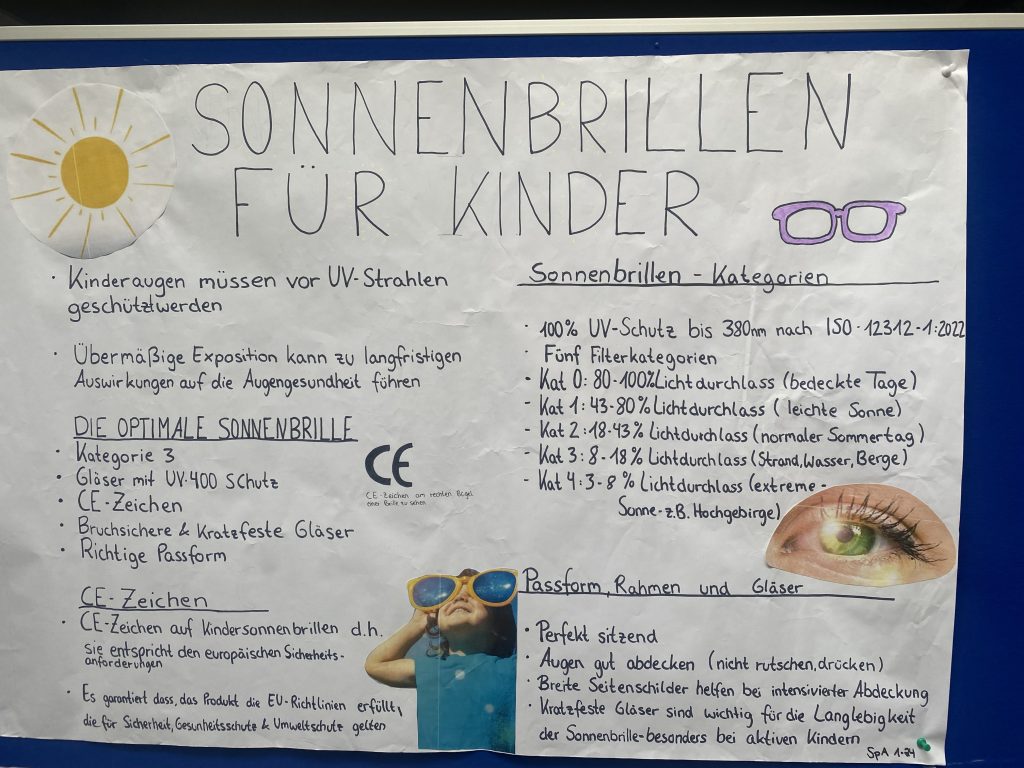 SONNENBRILLEN
FÜR KINDER
· Kinderaugen müssen vor UV-Strahlen
geschütztwerden
· Übermäßige Exposition kann zu langfristigen
Auswirkungen auf die Augengesundheit führen
DIE OPTIMALE SONNENBRILLE
· Kategorie 3
· Gläser mit UV-400 Schutz
· CE-Zeichen
· Bruchsichere & Kratzfeste Gläser
· Richtige Passform
CE
CE-Zeichen am rechten Bügel
einer Brille zu sehen
CE-Zeichen
· CE-Zeichen auf Kindersonnenbrillen d.h.
sie entspricht den europäischen Sicherheits-
anforderungen
· Es garantiert dass, das Produkt die EU-Richtlinien erfüllt,
die für Sicherheit, Gesunheitsschutz & Umweltschutz gelten
Sonnenbrillen - Kategorien
· 100% UV-Schutz bis 380nm nach ISO-12312-1:2022
· Fünf Filterkategorien
- Kat 0: 80-100% Lichtdurchlass (bedeckte Tage)
- Kat 1: 43-80% Lichtdurchlass (leichte Sonne)
- Kat 2: 18-43% Lichtdurchlass (normaler Sommertag)
- Kat 3: 8-18% Lichtdurchlass (Strand, Wasser, Berge)
- Kat 4: 3-8% Lichtdurchlass (extreme -
Sonne-z.B. Hochgebirge)
Passform, Rahmen und Gläser
· Perfekt sitzend
· Augen gut abdecken (nicht rutschen, drücken)
· Breite Seitenschilder helfen bei intensivierter Abdeckung
· Kratzfeste Gläser sind wichtig für die Langlebigkeit
der Sonnenbrille-besonders bei aktiven Kindern
SpA 1-24